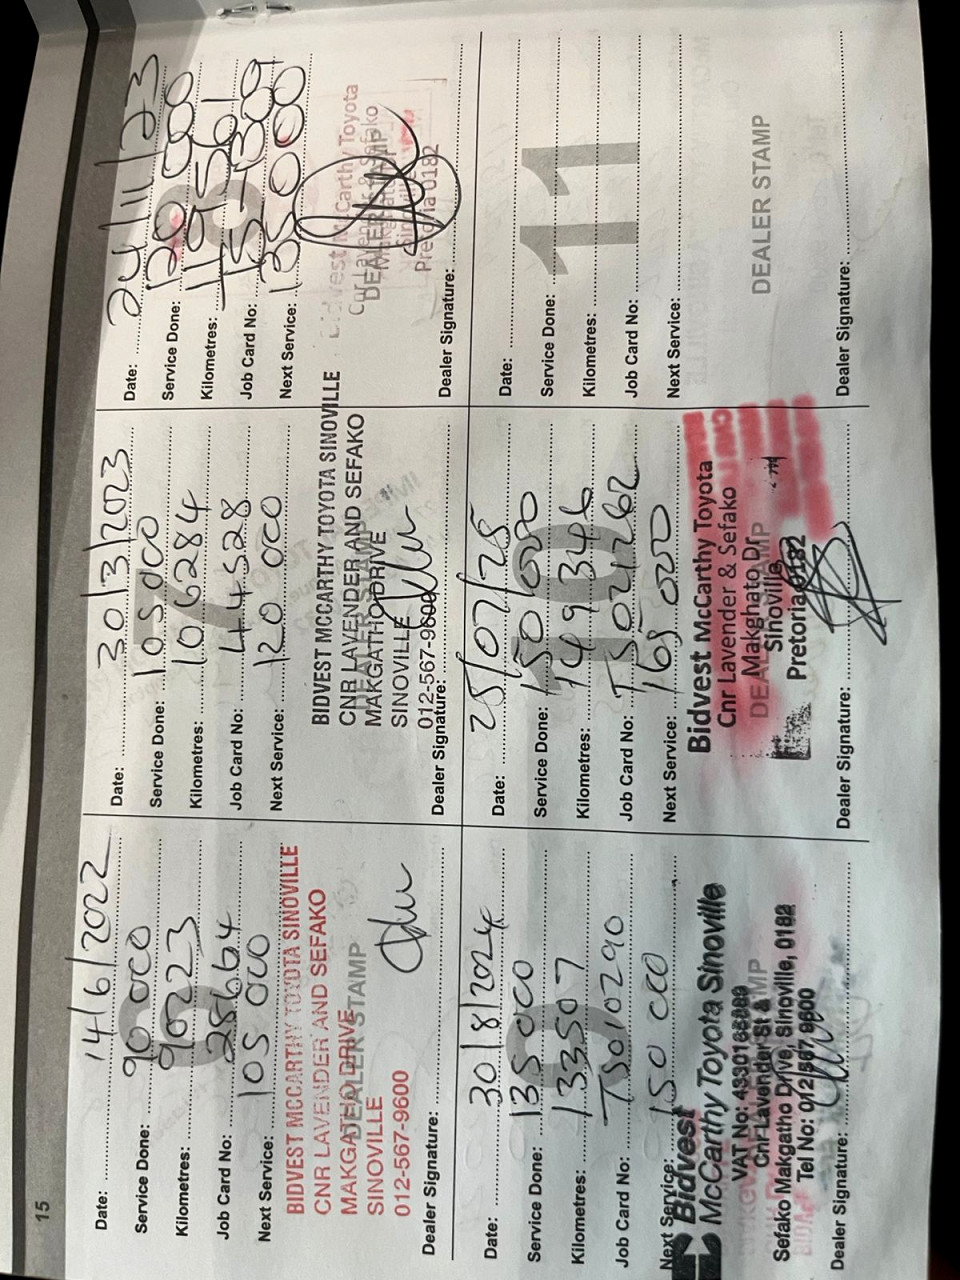 15
Date: 14/6/2022
Service Done: 90 000
Kilometres: 90223
Job Card No: 28664
Next Service: 105 000
BIDVEST MCCARTHY TOYOTA SINOVILLE
CNR LAVENDER AND SEFAKO
MAKGATHO DRIVE
SINOVILLE
012-567-9600
DEALER STAMP
Dealer Signature:
7
Date: 30/3/2023
Service Done: 105 000
Kilometres: 106284
Job Card No: 44528
Next Service: 120 000
BIDVEST MCCARTHY TOYOTA SINOVILLE
CNR LAVENDER AND SEFAKO
MAKGATHO DRIVE
SINOVILLE
012-567-9600
Dealer Signature:
8
Date: 24/11/23
Service Done: 120 000
Kilometres: 119561
Job Card No:
Next Service: 135 000
Bidvest McCarthy Toyota
Cnr Lavender & Sefako
DEALER STAMP
Sinoville
Pretoria 0182
Dealer Signature:
9
Date: 30/8/2024
Service Done: 135 000
Kilometres: 133507
Job Card No: TS010290
Next Service: 150 000
Bidvest
McCarthy Toyota Sinoville
VAT No:
Cnr Lavender St &
Sefako Makgatho Drive, Sinoville, 0182
Tel No: 012 567 9600
Dealer Signature:
10
Date: 25/07/25
Service Done: 150 000
Kilometres: 149346
Job Card No: TS024262
Next Service: 165 000
Bidvest McCarthy Toyota
Cnr Lavender & Sefako
Makghato Dr
DEALER STAMP
Sinoville
Pretoria 0182
Dealer Signature:
11
Date:
Service Done:
Kilometres:
Job Card No:
Next Service:
DEALER STAMP
Dealer Signature: